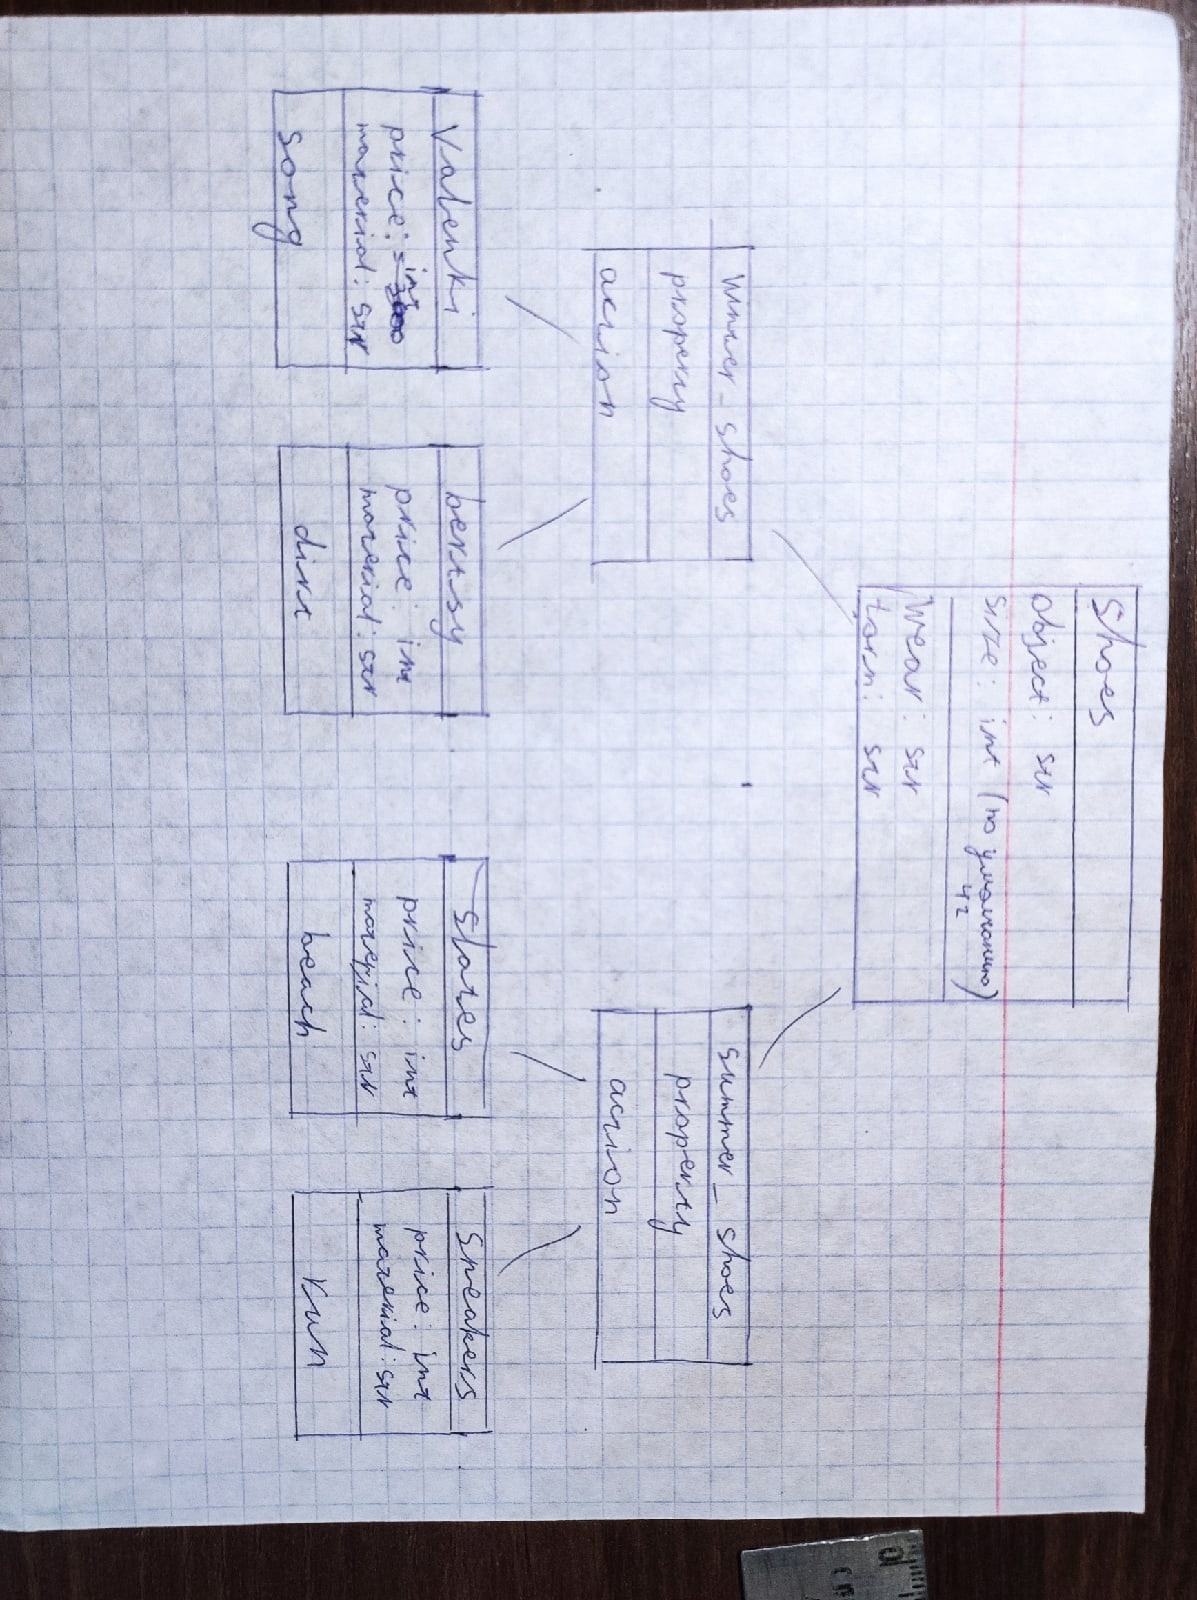 Shoes
object: str
size: int (по умолчанию)
42
wear: str
torn: str
Winter_shoes
property
action
summer_shoes
property
action
Valenki
price: int
material: str
song
bertsy
price: int
material: str
dirt
Slates
price: int
material: str
beach
Sneakers
price: int
material: str
run
10
9